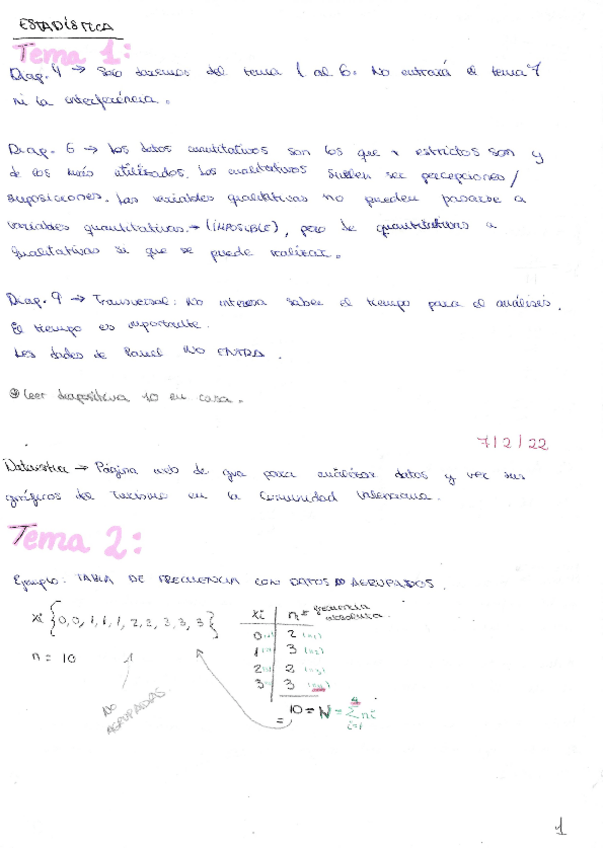 ESTADÍSTICA
Tema 1:
Diap. 4 → Solo daremos del tema 1 al 6. No entrará el tema 7
ni la interferéncia.
Diap. 6 → Los datos cuantitativos son los que + estrictos son y
de los más utilizados. Los cualitativos suelen ser percepciones /
suposiciones. Las variables qualitativas no pueden pasarse a
variables quantitativas → (IMPOSIBLE), pero de quantitativas a
qualitativas si que se puede realizar.
Diap. 9 → Transversal: No interesa saber el tiempo para el análisis.
El tiempo es importante.
Les dades de Panel NO ENTRA.
Leer diapositiva 10 en casa.
7/2/22
→ Página web de gva para análisar datos y ver sus
gráficos de Turismo en la Comunidad Valenciana.
Tema 2:
Ejemplo: TABLA DE FRECUENCIA CON DATOS NO AGRUPADOS.
xi {0,0,1,1,1,2,2,3,3,3}
n = 10
NO
AGRUPADOS
xi | ni = frecuencia absoluta.
0 | 2 (n1)
1 | 3 (n2)
2 | 2 (n3)
3 | 3 (n4)
= 10 = N = 4 Σ ni i=1
1